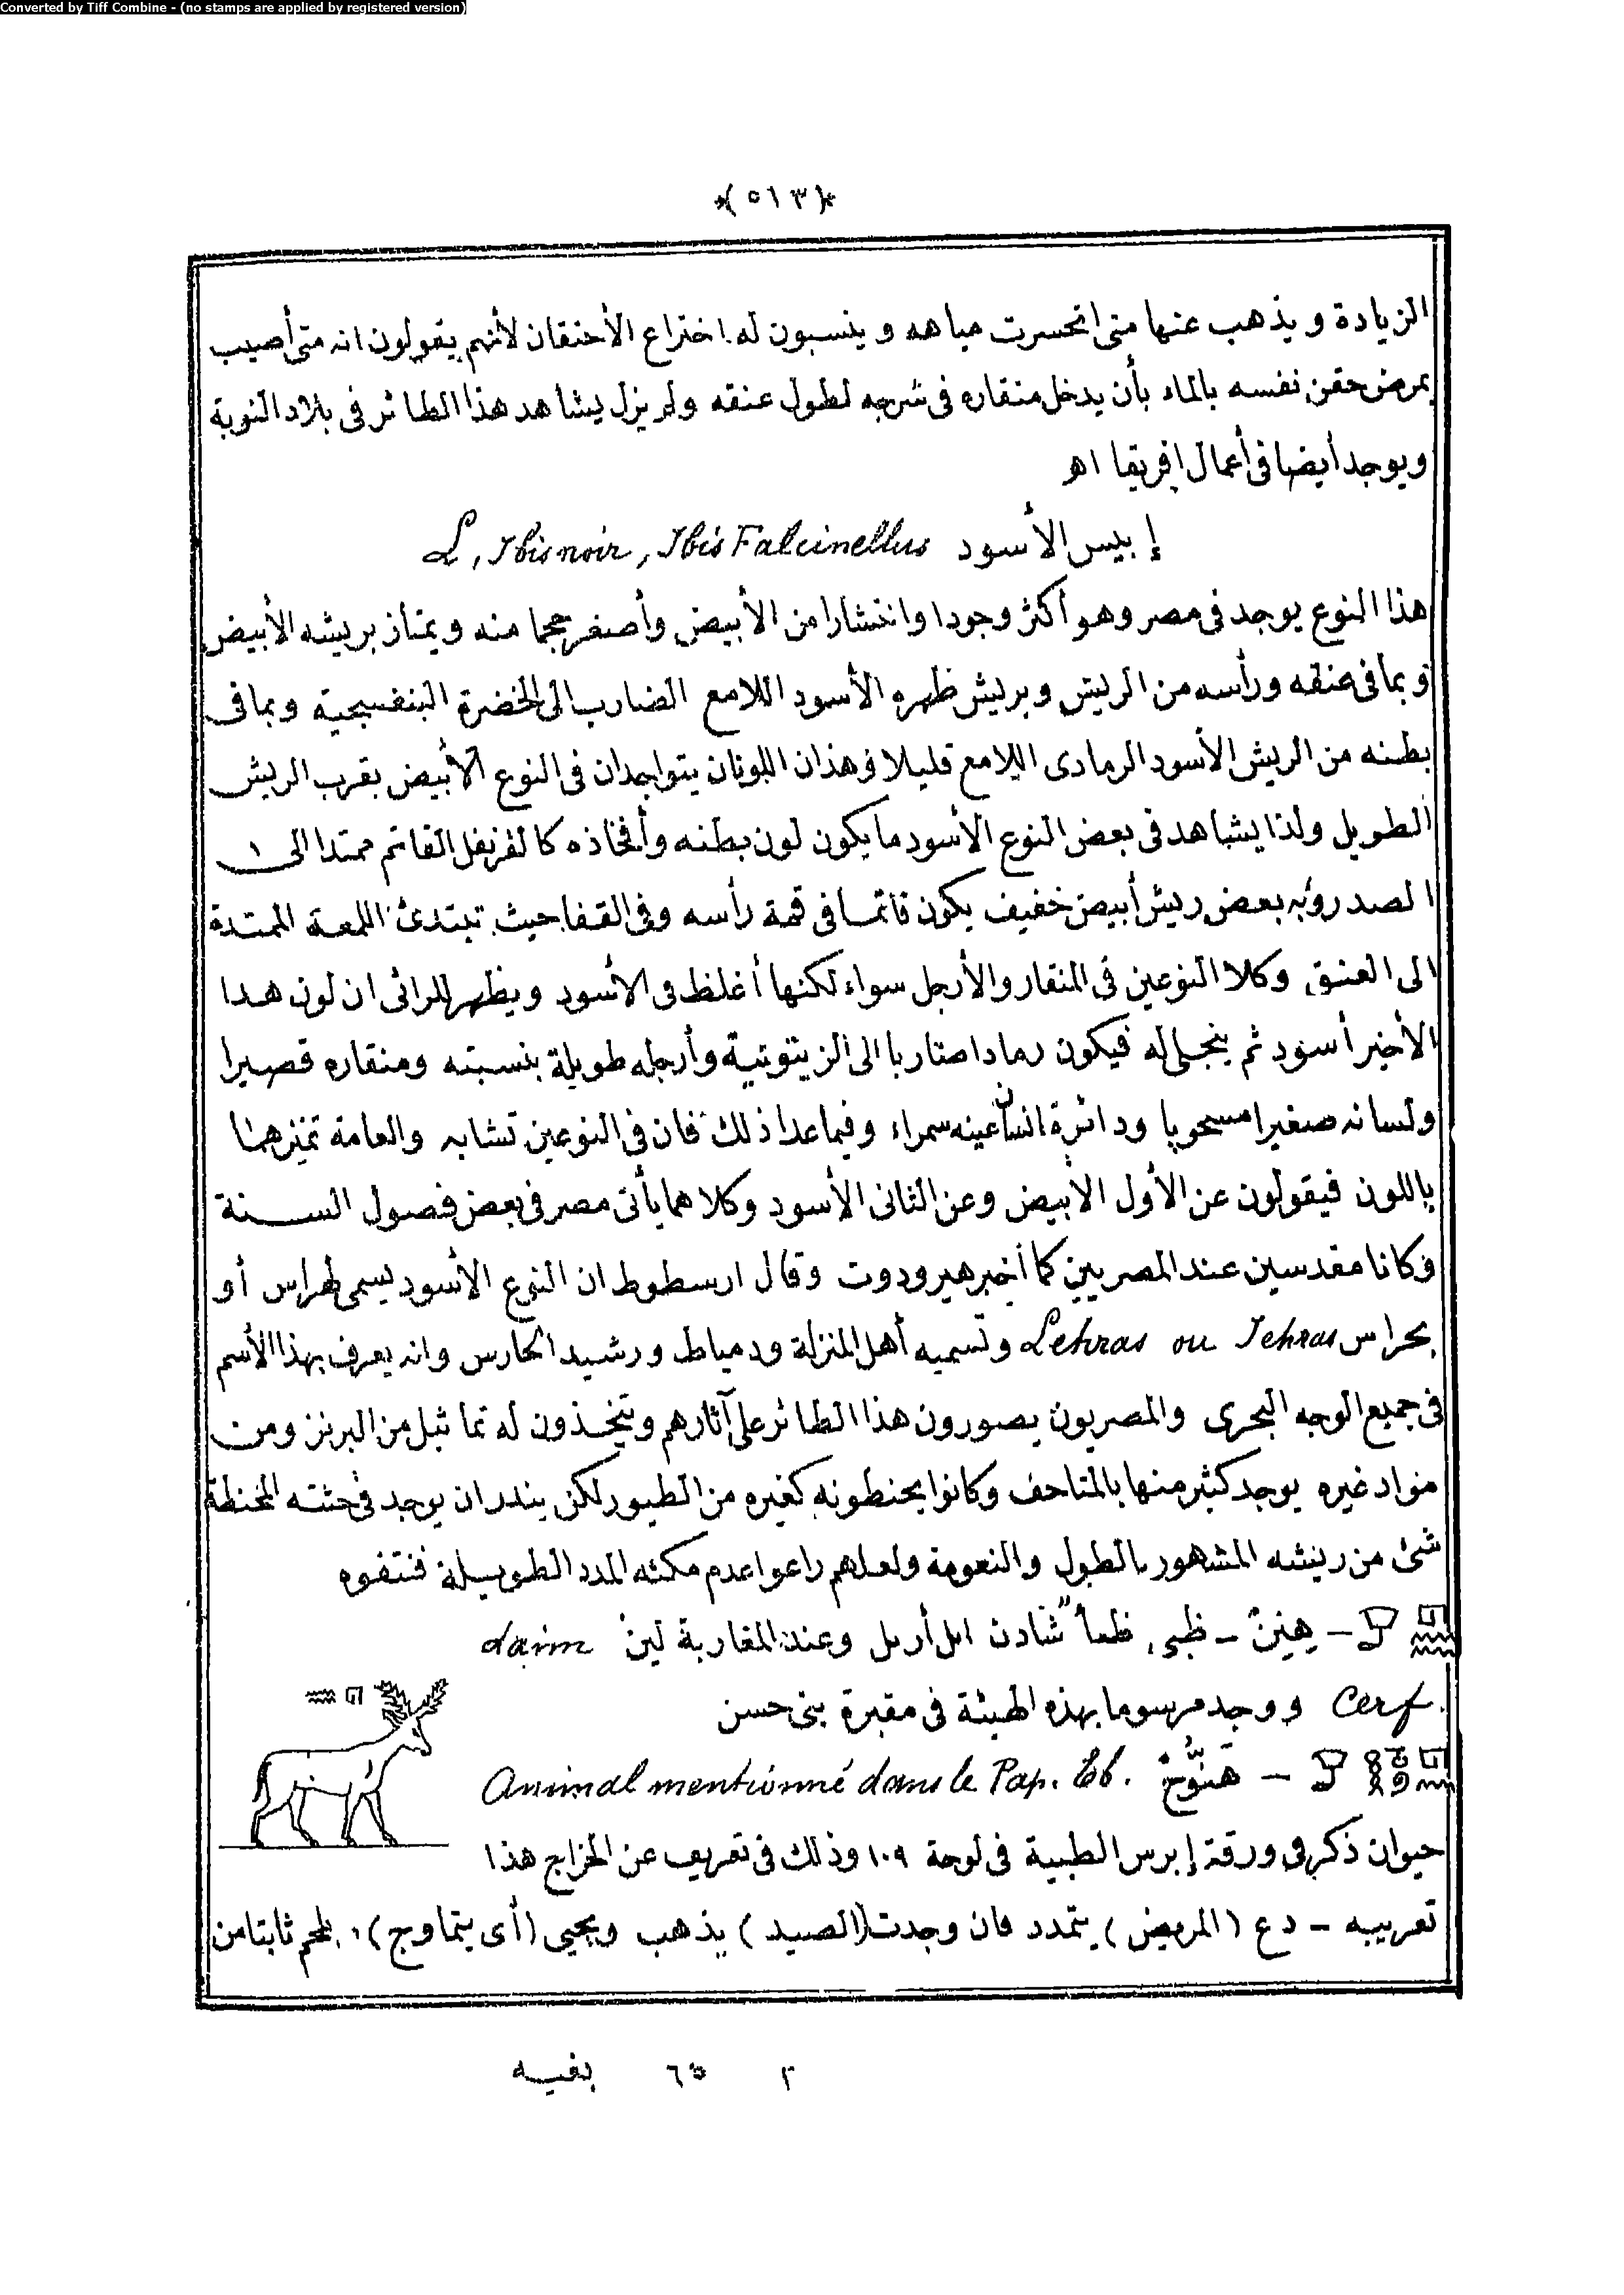 Converted by Tiff Combine - (no stamps are applied by registered version)
﴿٥١٣﴾
الزيادة ويذهب عنها متى انحسرت مياهه وينسبون له اختراع الأحنقان لأنهم يقولون انه متى أصيب
بمرض حقن نفسه بالماء بأن يدخل منقاره فى شرجه لطول عنقه ولم يزل يشاهد هذا الطائر فى بلاد النوبة
ويوجد أيضا فى أعمال افريقا اه
إبيس الأسود L, Ibis noir, Ibis Falcinellus
هذا النوع يوجد فى مصر وهو أكثر وجودا وانتشارا من الأبيض وأصغر حجما منه ويمتاز بريشه الأبيض
وبما فى عنقه ورأسه من الريش وبريش ظهره الأسود اللامع الضارب الى الخضرة البنفسجية وبما فى
بطنه من الريش الأسود الرمادى اللامع قليلا وهذان اللونان يتواجدان فى النوع الأبيض بقرب الريش
الطويل ولذا يشاهد فى بعض النوع الأسود ما يكون لون بطنه وأفخاذه كالقرنفل القاتم ممتدا الى
الصدر وبه بعض ريش أبيض خفيف يكون قاتما فى قمة رأسه وفى القفا حيث تبتدئ اللمعة الممتدة
الى العنق وكلا النوعين فى المنقار والأرجل سواء لكنها أغلظ فى الأسود ويظهر للرائى ان لون هذا
الأخير أسود ثم ينجلى له فيكون رمادا ضاربا الى الزيتونية وأرجله طويلة بنسبته ومنقاره قصيرا
ولسانه صغيرا مسحوبا ودائرة انسان عينه سمراء وفيما عدا ذلك فان فى النوعين تشابه والعامة تميزهما
باللون فيقولون عن الأول الأبيض وعن الثانى الأسود وكلاهما يأتى مصر فى بعض فصول السنة
وكانا مقدسين عند المصريين كما أخبر هيرودوت وقال ارسطوط ان النوع الأسود يسمى لهراس أو
يحراس Lehras ou Jehras وتسميه أهل المنزلة ودمياط ورشيد الحارس وانه يعرف بهذا الأسم
فى جميع الوجه البحرى والمصريون يصورون هذا الطائر على آثارهم ويتخذون له تماثيل من البرنز ومن
مواد غيره يوجد كثير منها بالمتاحف وكانوا يحنطونه كغيره من الطيور لكن يندر ان يوجد فى جثته المحنطة
شئ من ريشه المشهور بالطول والنعومة ولعلهم راعوا عدم مكثه المدد الطويلة فنتفوه
– هنن – ظبى، شادن ايل أريل وعند المغاربة لين daim
Cerf. ووجد مرسوما بهذه الهيئة فى مقبرة بنى حسن
– Animal mentionné dans le Pap. Eb.
حيوان ذكر فى ورقة إبرس الطبية فى لوحة ١٠٩ وذلك فى تعريف عن الخراج هذا
تعريبه – دع (المريض) يتمدد فان وجدت (الصيد) يذهب ويجيى (أى يتماوج) ثابتا من
٢ ٦٥ بغيه